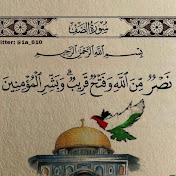 سُورَةُ الصَّفِّ
itter: @1a_610
بِسْمِ اللَّهِ الرَّحْمَٰنِ الرَّحِيمِ
نَصْرٌ مِّنَ اللَّهِ وَفَتْحٌ قَرِيبٌ ۗ وَبَشِّرِ الْمُؤْمِنِينَ